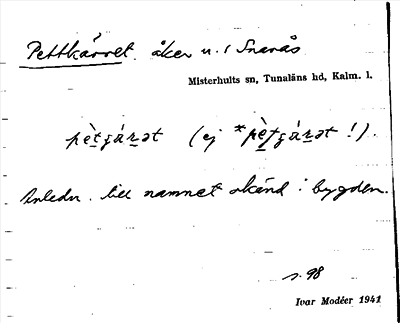 Pettkärret. åker u. / Snarås
Misterhults sn, Tunaläns hd, Kalm. l.
pètʒárət (ej *pètʒárət !).
Anledn. till namnet okänd i bygden.
s. 98
Ivar Modéer 1941